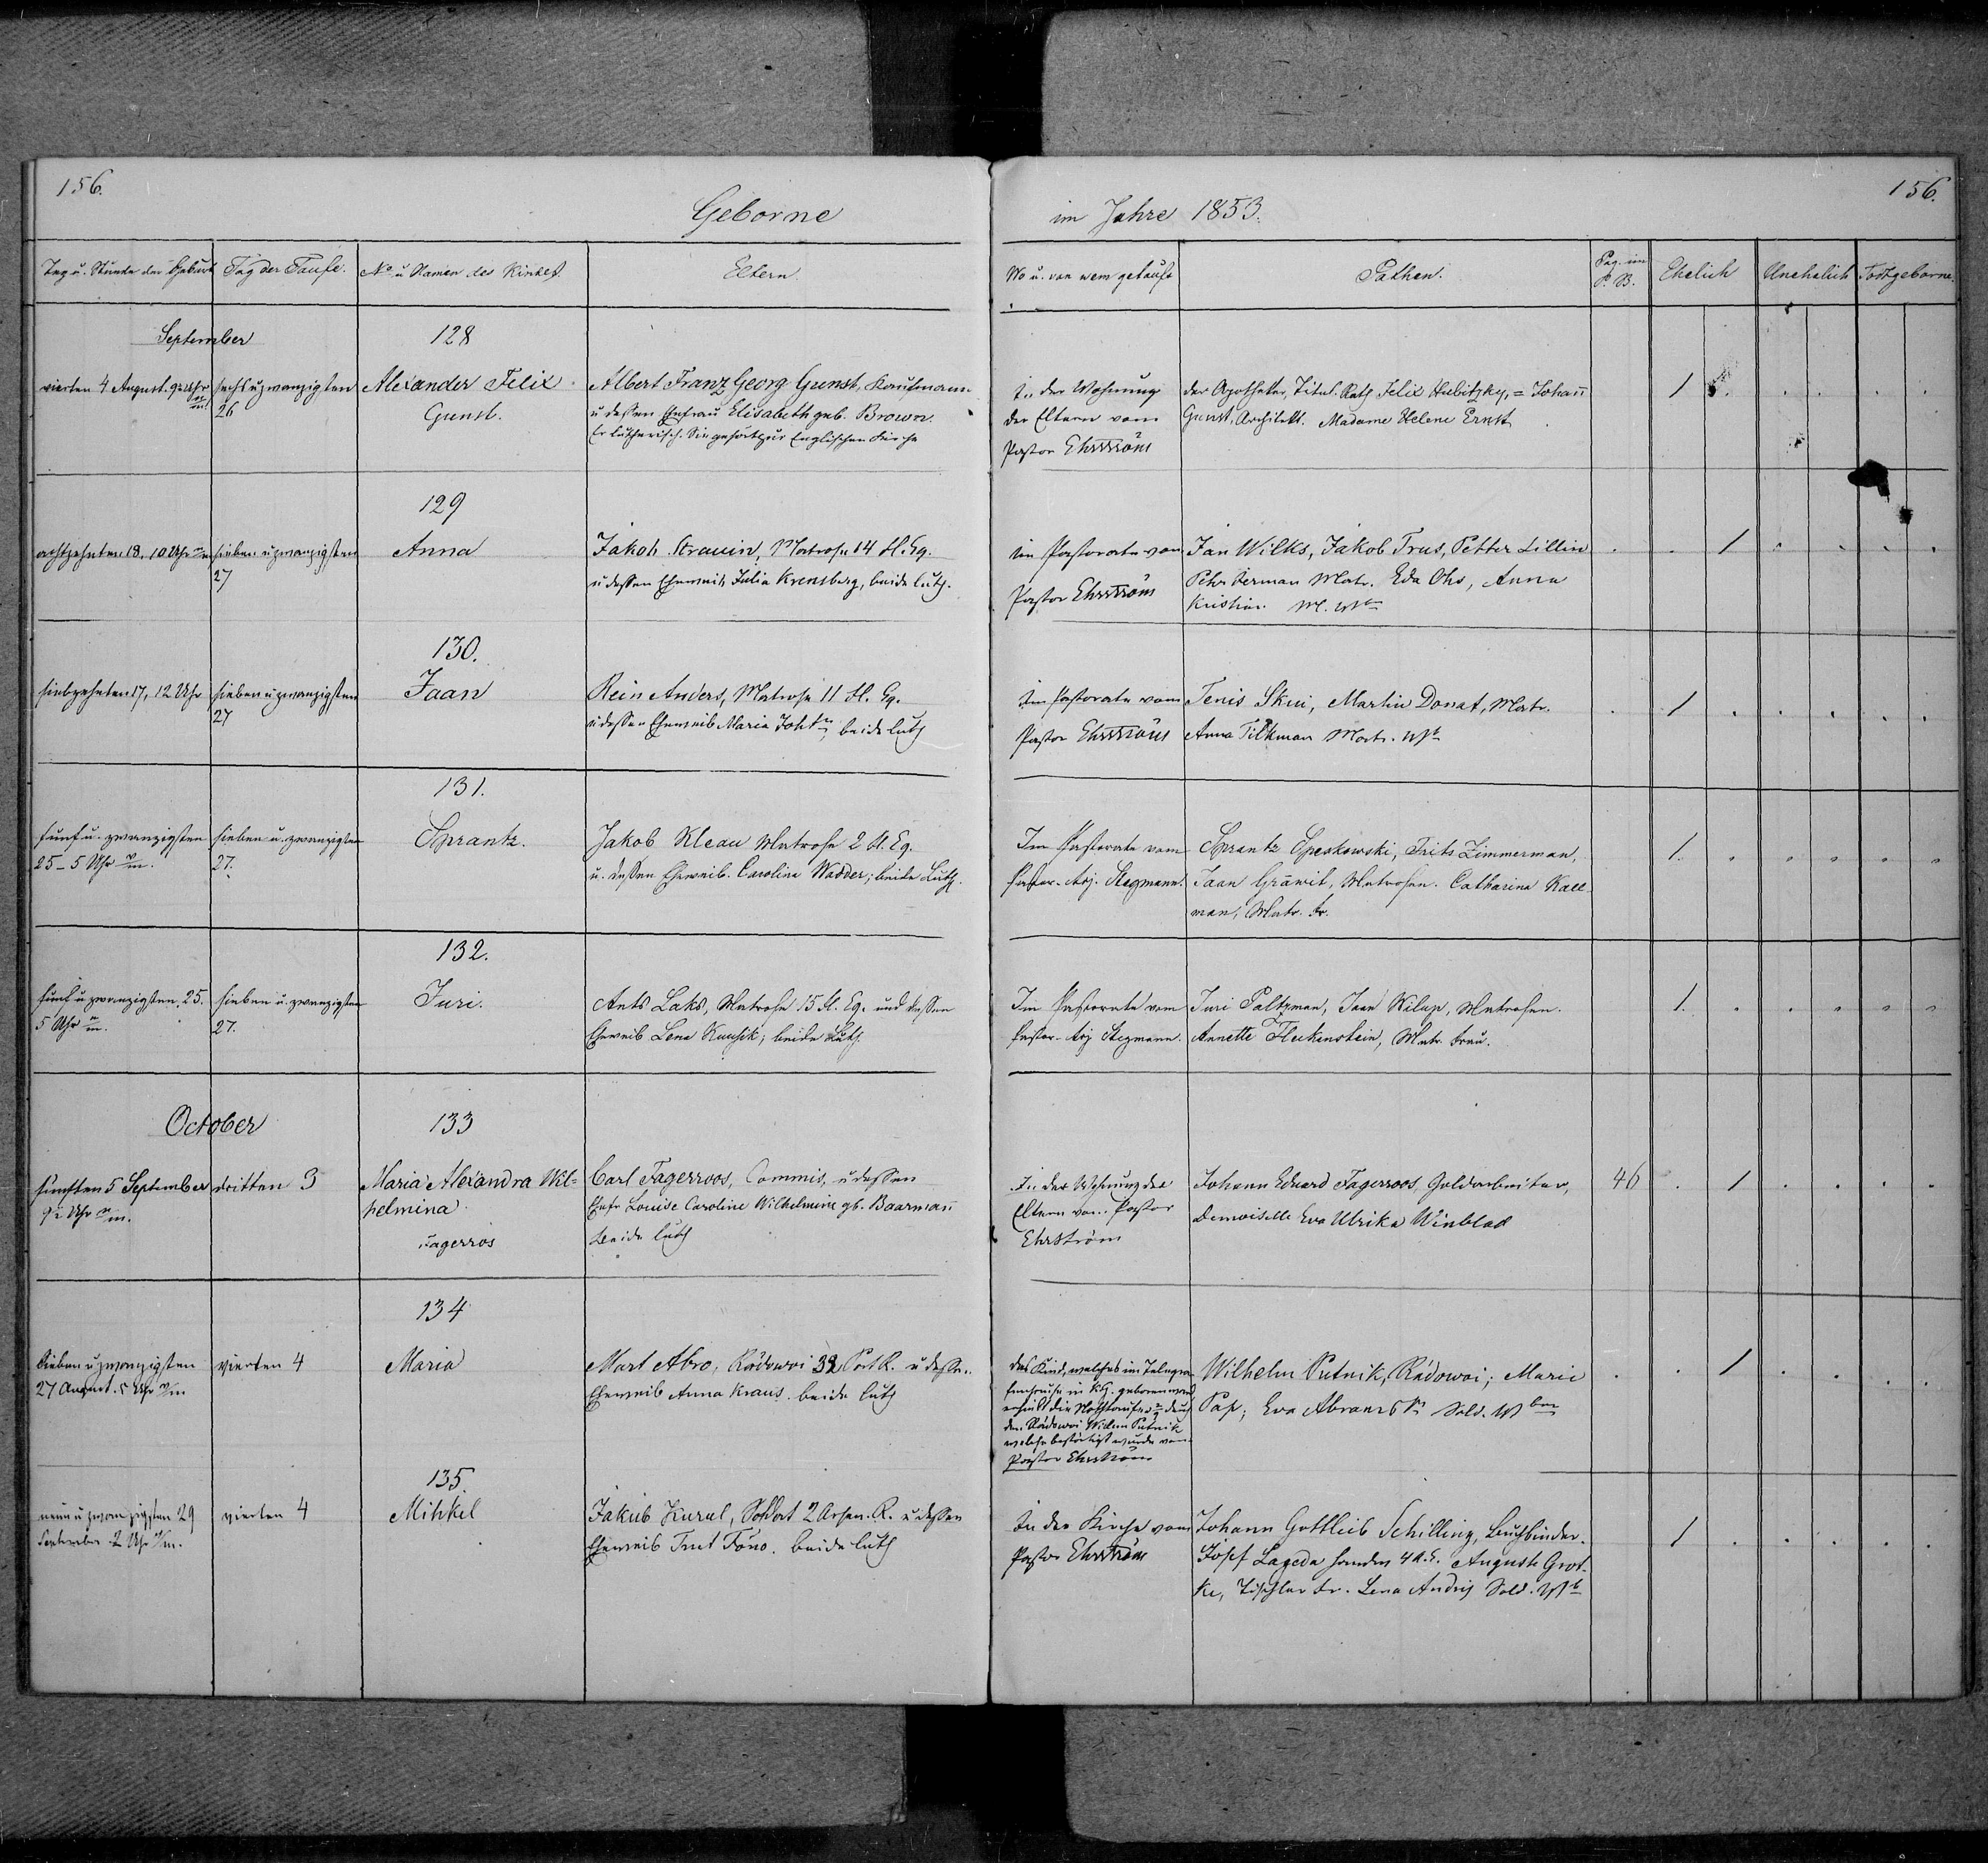 156.
Geborne
im Jahre 1853.
156.
Tag u. Stunde der Geburt
Tag der Taufe.
No u Namen des Kindes
Eltern
Wo u. von wem getauft
Pathen.
Pag. im
P. B.
Ehelich
Unehelich
Todtgeborne.
September
128
vierten 4 August. 9½ Uhr
sechs u zwanzigsten
26
Alexander Felix
Gunst.
Albert Franz Georg Gunst, Kaufmann
u dessen Ehefrau Elisabeth geb. Brown.
Er lutherisch. Sie gehört zur Englischen Kirche
In der Wohnung
der Eltern vom
Pastor Ehrström
der Apotheker, Titul. Rath Felix Hubitzky, = Johann
Gunst, Architekt. Madame Helene Ernst
1
129
achtzehnten 18. 10 Uhr
sieben u zwanzigsten
27
Anna
Jakob Strauin, Matrose 14 Fl. Eq.
u dessen Eheweib Julia Krensberg, beide luth.
im Pastorate vom
Pastor Ehrström
Jan Wilks, Jakob Trus, Petter Lillin
Pehr Berman Matr. Eda Ohs, Anna
Kristian M. Wb
1
130.
siebzehnten 17, 12 Uhr
sieben u zwanzigsten
27
Jaan
Rein Anders, Matrose 11 Fl. Eq.
u dessen Eheweib Maria beide luth
Im Pastorate vom
Pastor Ehrström
Tenis Skui, Martin Donat, Matr.
Anna Tilkman Matr. Wb
1
131.
fünf u. zwanzigsten
25 - 5 Uhr
sieben u. zwanzigsten
27.
Sprantz.
Jakob Kleau Matrose 2 Fl. Eq.
u. dessen Eheweib. Carolina Wadder; beide Luth.
Im Pastorate vom
Pastor-Adj. Stegmann.
Sprantz Speskowski, Frits Zimmerman,
Jaan Gräwit, Matrosen. Catharina Kall-
man, Matr. Fr.
1.
132.
fünf u zwanzigsten 25.
5 Uhr
sieben u. zwanzigsten
27.
Juri.
Ants Laks, Matrose 15 Fl. Eq. und dessen
Eheweib Lena Kuusik; beide Luth.
Im Pastorate vom
Pastor-Adj Stegmann.
Juri Paltzman, Jaan Kilup, Matrosen.
Annette Fleckenstein, Matr. Frau.
1.
October
133
fünften 5 September
9½ Uhr
dritten 3
Maria Alexandra Wil=
helmina
Fagerros
Carl Fagerroos, Commis, u dessen
Ehefr Louise Caroline Wilhelmine gb. Baarmann
beide luth
In der Wohnung der
Eltern vom Pastor
Ehrström
Johann Eduard Fagerroos, Goldarbeiter,
Demoiselle Eva Ulrika Winblad
46
1
134
sieben u zwanzigsten
27 August. 5 Uhr
vierten 4
Maria
Mart Abro, Rädowoi 32 Port R. u dessen
Eheweib Anna Kraus. beide luth
das Kind, welches im
in geboren ward
erhielt die Nothtaufe durch
den Rädowoi Willem Putnik
welche bestätigt wurde vom
Pastor Ehrström
Wilhelm Putnik, Rädowoi; Marie
Pap; Eva Sold. Wber
1
135.
neun u zwanzigsten 29
September 2 Uhr
vierten 4
Mihkel
Jakub Kurul, Soldat 2 Arsen. R. u dessen
Eheweib Trut Töno. beide luth
In der Kirche vom
Pastor Ehrström
Johann Gottlieb Schilling, Buchbinder.
Josef Lageda Auguste Grot-
ke, Tischler Fr. Lena Andrij Sold. Wb
1